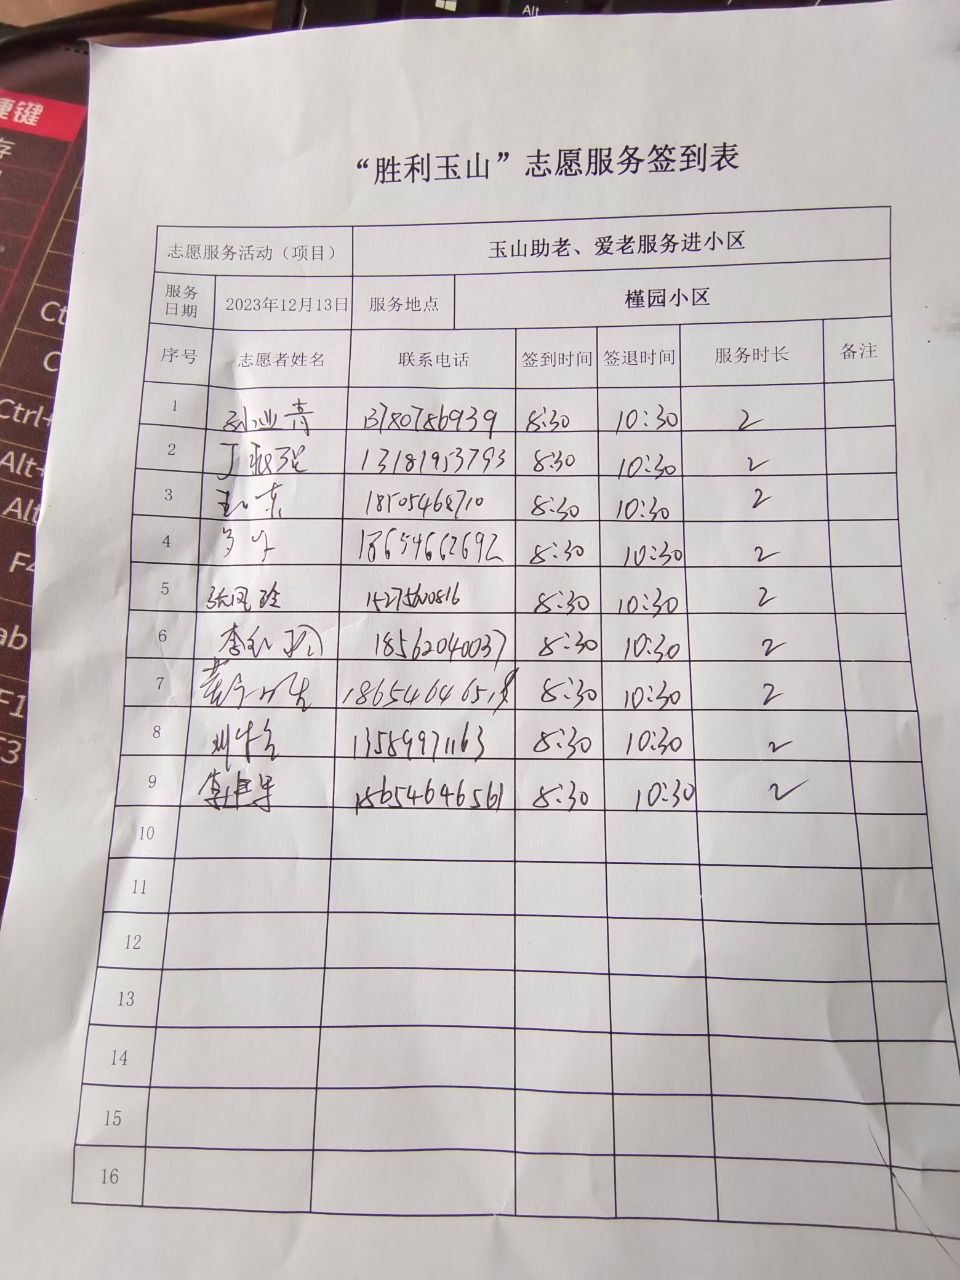 Alt
捷键
存
Ct
C
Ctrl+
Alt+
Alt
F4
ab
F1
F3
“胜利玉山”志愿服务签到表
志愿服务活动（项目） 玉山助老、爱老服务进小区
服务日期 2023年12月13日 服务地点 槿园小区
序号 志愿者姓名 联系电话 签到时间 签退时间 服务时长 备注
1 13780786939 8:30 10:30 2
2 13181953793 8:30 10:30 2
3 18505468710 8:30 10:30 2
4 18654662692 8:30 10:30 2
5 张凤玲 8:30 10:30 2
6 18562040037 8:30 10:30 2
7 8:30 10:30 2
8 13589971163 8:30 10:30 2
9 18654646561 8:30 10:30 2
10
11
12
13
14
15
16